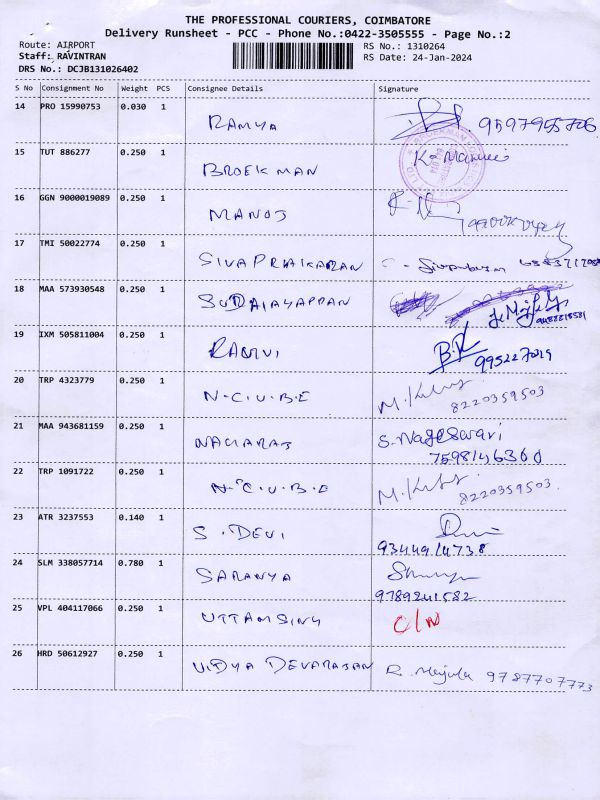 THE PROFESSIONAL COURIERS, COIMBATORE
Delivery Runsheet - PCC - Phone No.:0422-3505555 - Page No.:2
Route: AIRPORT RS No.: 1310264
Staff: RAVINTRAN RS Date: 24-Jan-2024
DRS No.: DCJB131026402
S No Consignment No Weight PCS Consignee Details Signature
14 PRO 15990753 0.030 1 RAMYA 9597955706
15 TUT 886277 0.250 1 BROEKMAN
16 GGN 9000019089 0.250 1 MANOJ
17 TMI 50022774 0.250 1 SIVAPRAKARAN
18 MAA 573930548 0.250 1 SUDALAYAPPAN
19 IXM 505811004 0.250 1 BK
995227029
20 TRP 4323779 0.250 1 N.C.U.B.E 8220359503
21 MAA 943681159 0.250 1 NAGARAJ S. Nageswari
7598146360
22 TRP 1091722 0.250 1 N.C.U.B.E 8220359503
23 ATR 3237553 0.140 1 S. DEVI
9344914738
24 SLM 338057714 0.780 1 SARANYA
9789241582
25 VPL 404117066 0.250 1 UTTAMSING C/N
26 HRD 50612927 0.250 1 VIDYA DEVARAJAN 9787707773